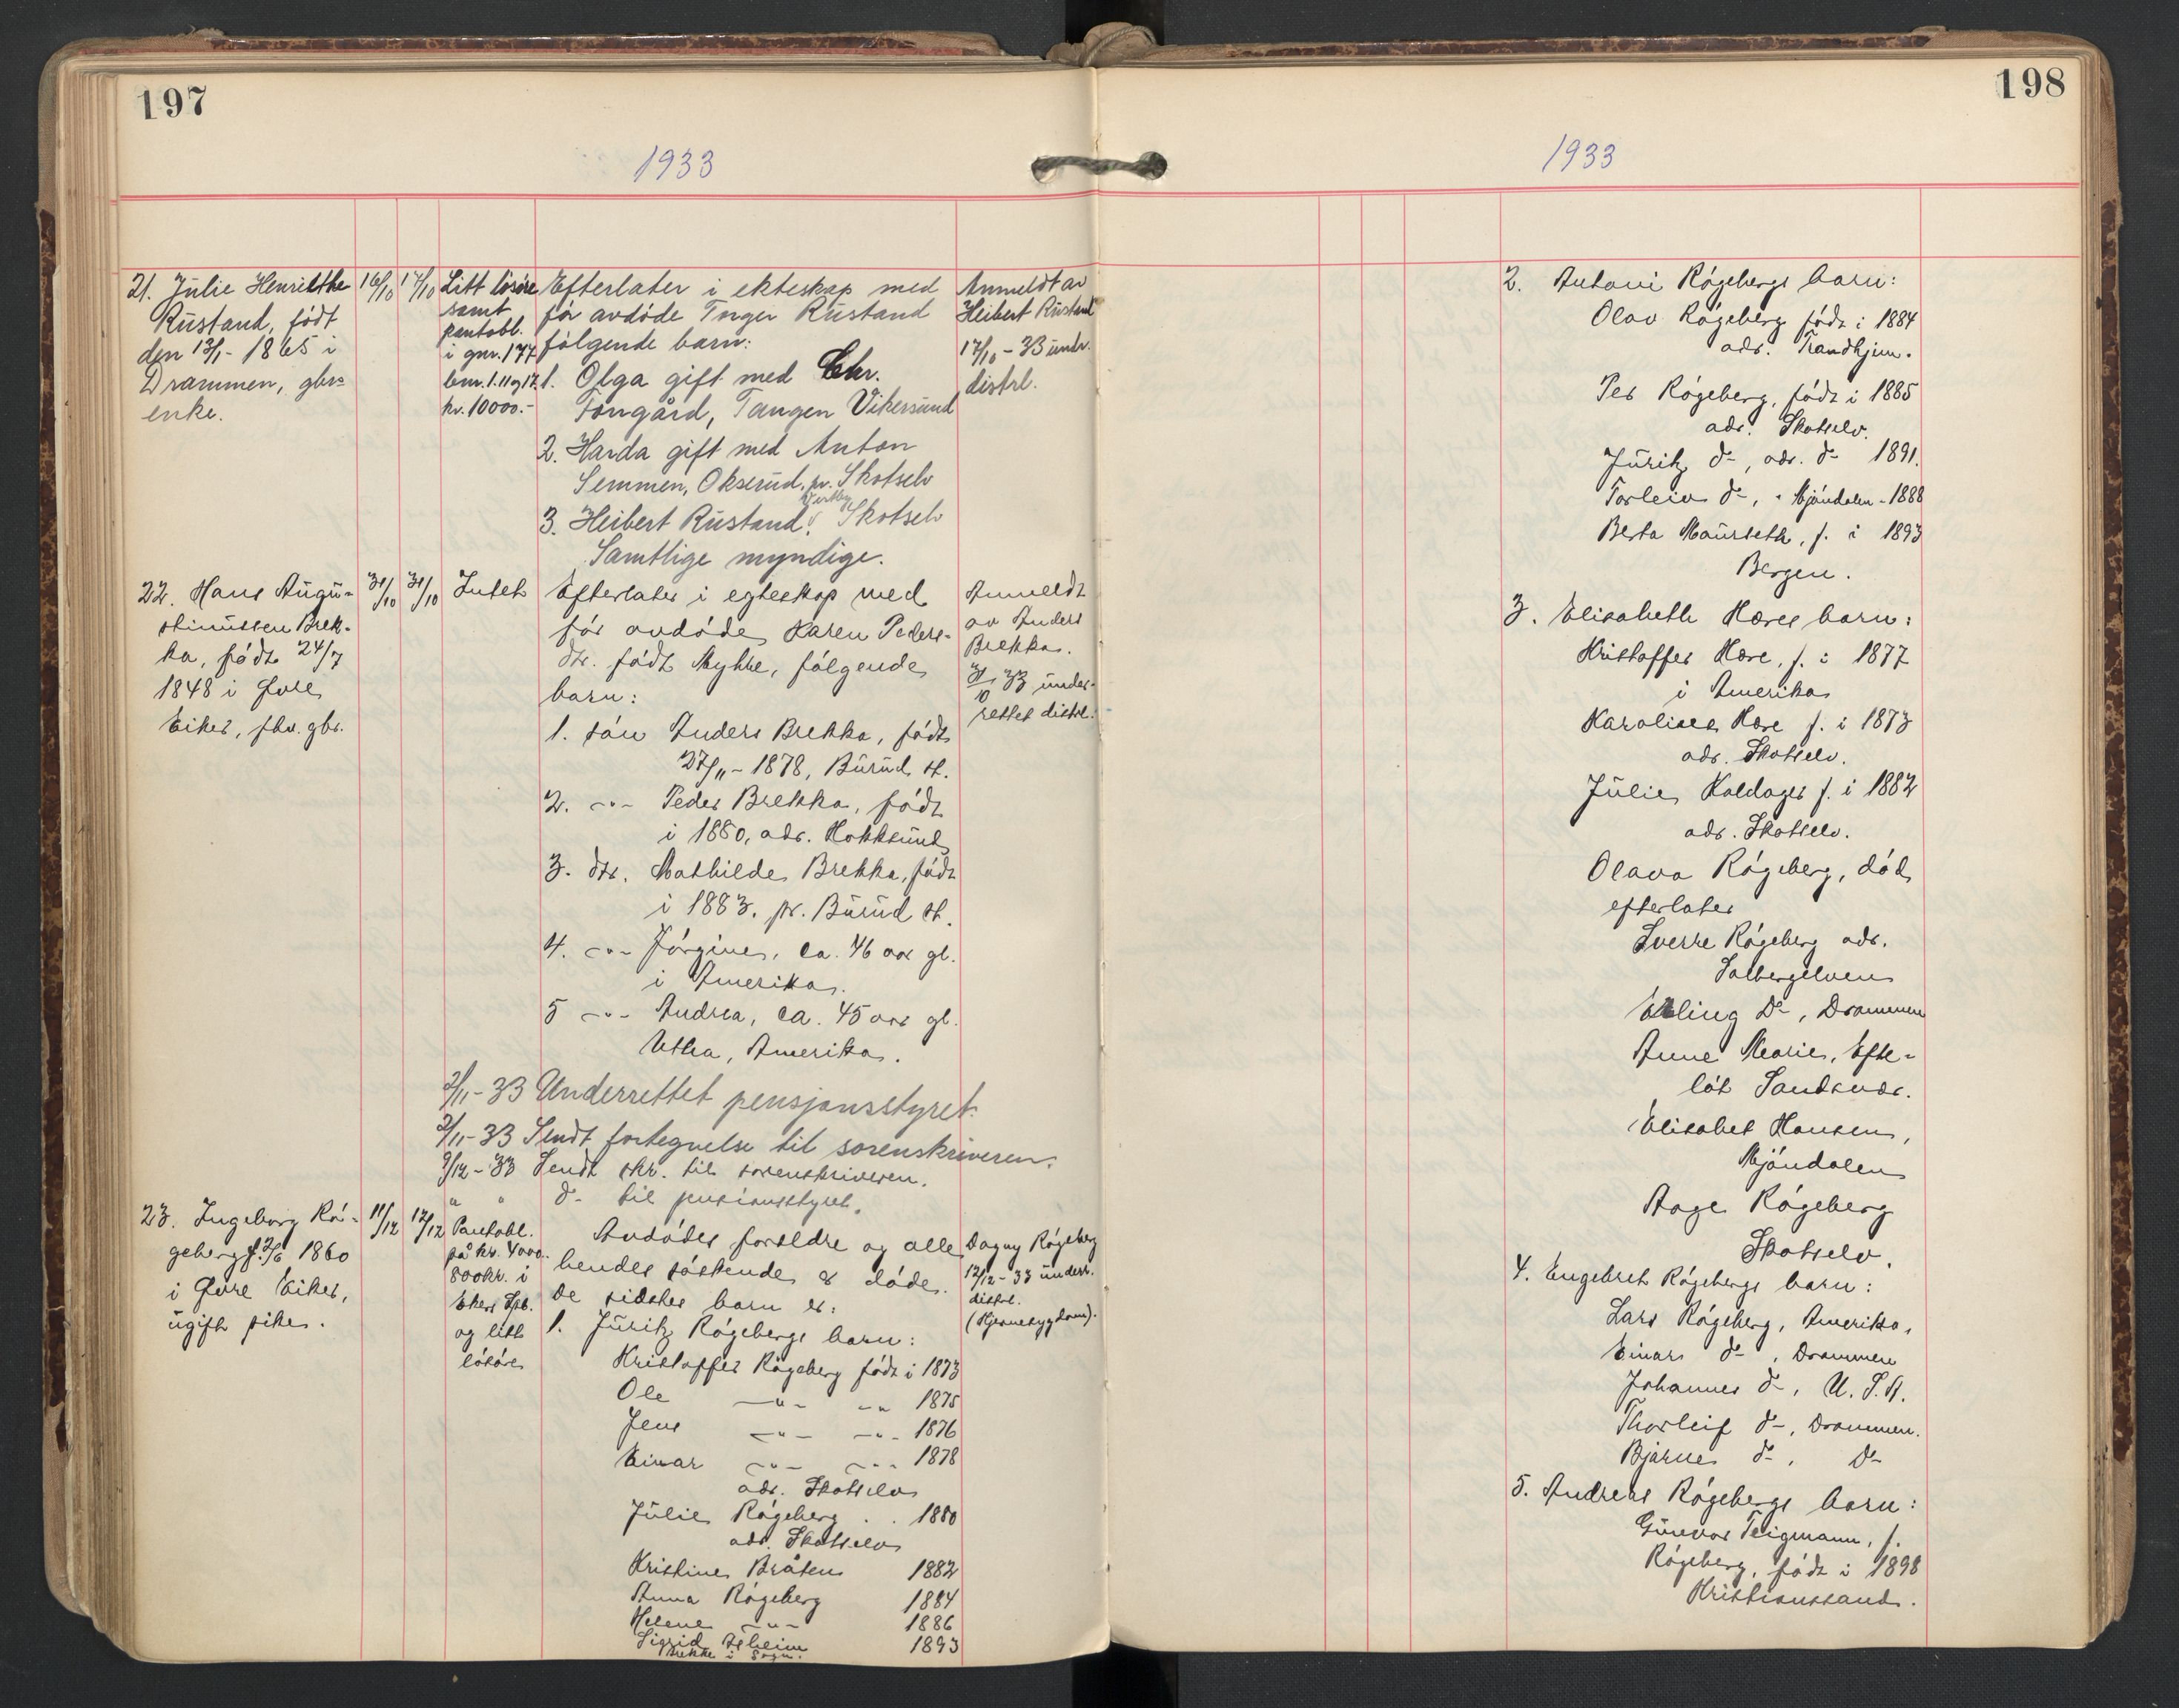 197
1933
21. Julie Henriette
Rustand, født
den 13/1 - 1865 i
Drammen, gbr.
enke.
16/10
17/10
Litt løsøre
samt
pantobl.
i gnr. 177
bnr. 1.11 og 17
kr. 10000.-
Efterlater i ekteskap med
før avdøde Torger Rustand
følgende barn:
1. Olga gift med Chr.
Fongård, Tangen Vikersund
2. Harda gift med Anton
Semmen, Okserud, pr. Skotselv
3. Heibert Rustand, Skotselv
Samtlige myndige.
Anmeldt av
Heibert Rustand
17/10 - 33 undr.
distrl.
22. Hans Augu-
stinussen Brek-
ka, født 24/7
1848 i Øvre
Eiker, fhv. gbr.
31/10
31/10
Intet
Efterlater i egteskap med
før avdøde Karen Peders-
dtr. født Myhre, følgende
barn:
1. søn Anders Brekka, født
27/11 - 1878, Burud st.
2. -"- Peder Brekka, født
i 1880, adr. Hokksund
3. dtr. Mathilde Brekka, født
i 1883. pr. Burud st.
4. -"- Jørgine, ca. 46 aar gl.
i Amerika.
5 -"- Andrea, ca. 45 aar gl.
Utha, Amerika.
Anmeldt
av Anders
Brekka.
31/10 33 under-
rettet distrl.
2/11 - 33 Underrettet pensjonsstyret.
2/11 - 33 Sendt fortegnelse til sorenskriveren.
9/12 - 33 Sendt skr. til sorenskriveren.
" " do til pensionsstyret.
23. Ingeborg Rø-
geberg f. 2/6 1860
i Øvre Eiker,
ugift pike.
11/12
12/12
Pantobl.
på kr. 4000.
800 kr. i
Ekers Spb.
og litt
løsøre
Avdødes forældre og alle
hendes søskende er døde.
De sidstes barn er:
1. Juritz Røgebergs barn:
Kristoffer Røgeberg født i 1873
Ole -"- -"- 1875
Jens -"- -"- 1876
Einar -"- -"- 1878
adr. Skotselv
Julie Røgeberg . . 1880
adr. Skotselv
Kristine Bråten 1882
Anna Røgeberg 1884
Helene -"- 1886
Sigrid Asheim 1893
Brekke i Sogn.
Dagny Røgeberg
12/12 - 33 underr.
distrl.
(Hjernesygdom).
198
1933
2. Antoni Røgebergs barn:
Olav Røgeberg født i 1884
adr. Trondhjem.
Per Røgeberg, født i 1885
adr. Skotselv.
Juritz do, adr. do 1891.
Torleiv do, " Mjøndalen - 1888
Berta Maurseth, f. i 1893
Bergen.
3. Elisabeth Hæres barn:
Kristoffer Hære, f. i 1877
i Amerika
Karoline Hære f. i 1873
adr. Skotselv.
Julie Kaldager f. i 1882
adr. Skotselv.
Olava Røgeberg, død,
efterlater
Sverre Røgeberg adr.
Solbergelven
Erling Do, Drammen
Anne Marie, Efte-
løt Sandsvær.
Elisabet Hansen,
Mjøndalen
Aage Røgeberg
Skotselv.
4. Engebret Røgebergs barn:
Lars Røgeberg, Amerika,
Einar do, Drammen
Johannes do, U.S.A.
Thorleif do, Drammen.
Bjarne do, Do
5. Andreas Røgebergs barn:
Gunvor Teigmann, f.
Røgeberg, født i 1898
Kristianssand.